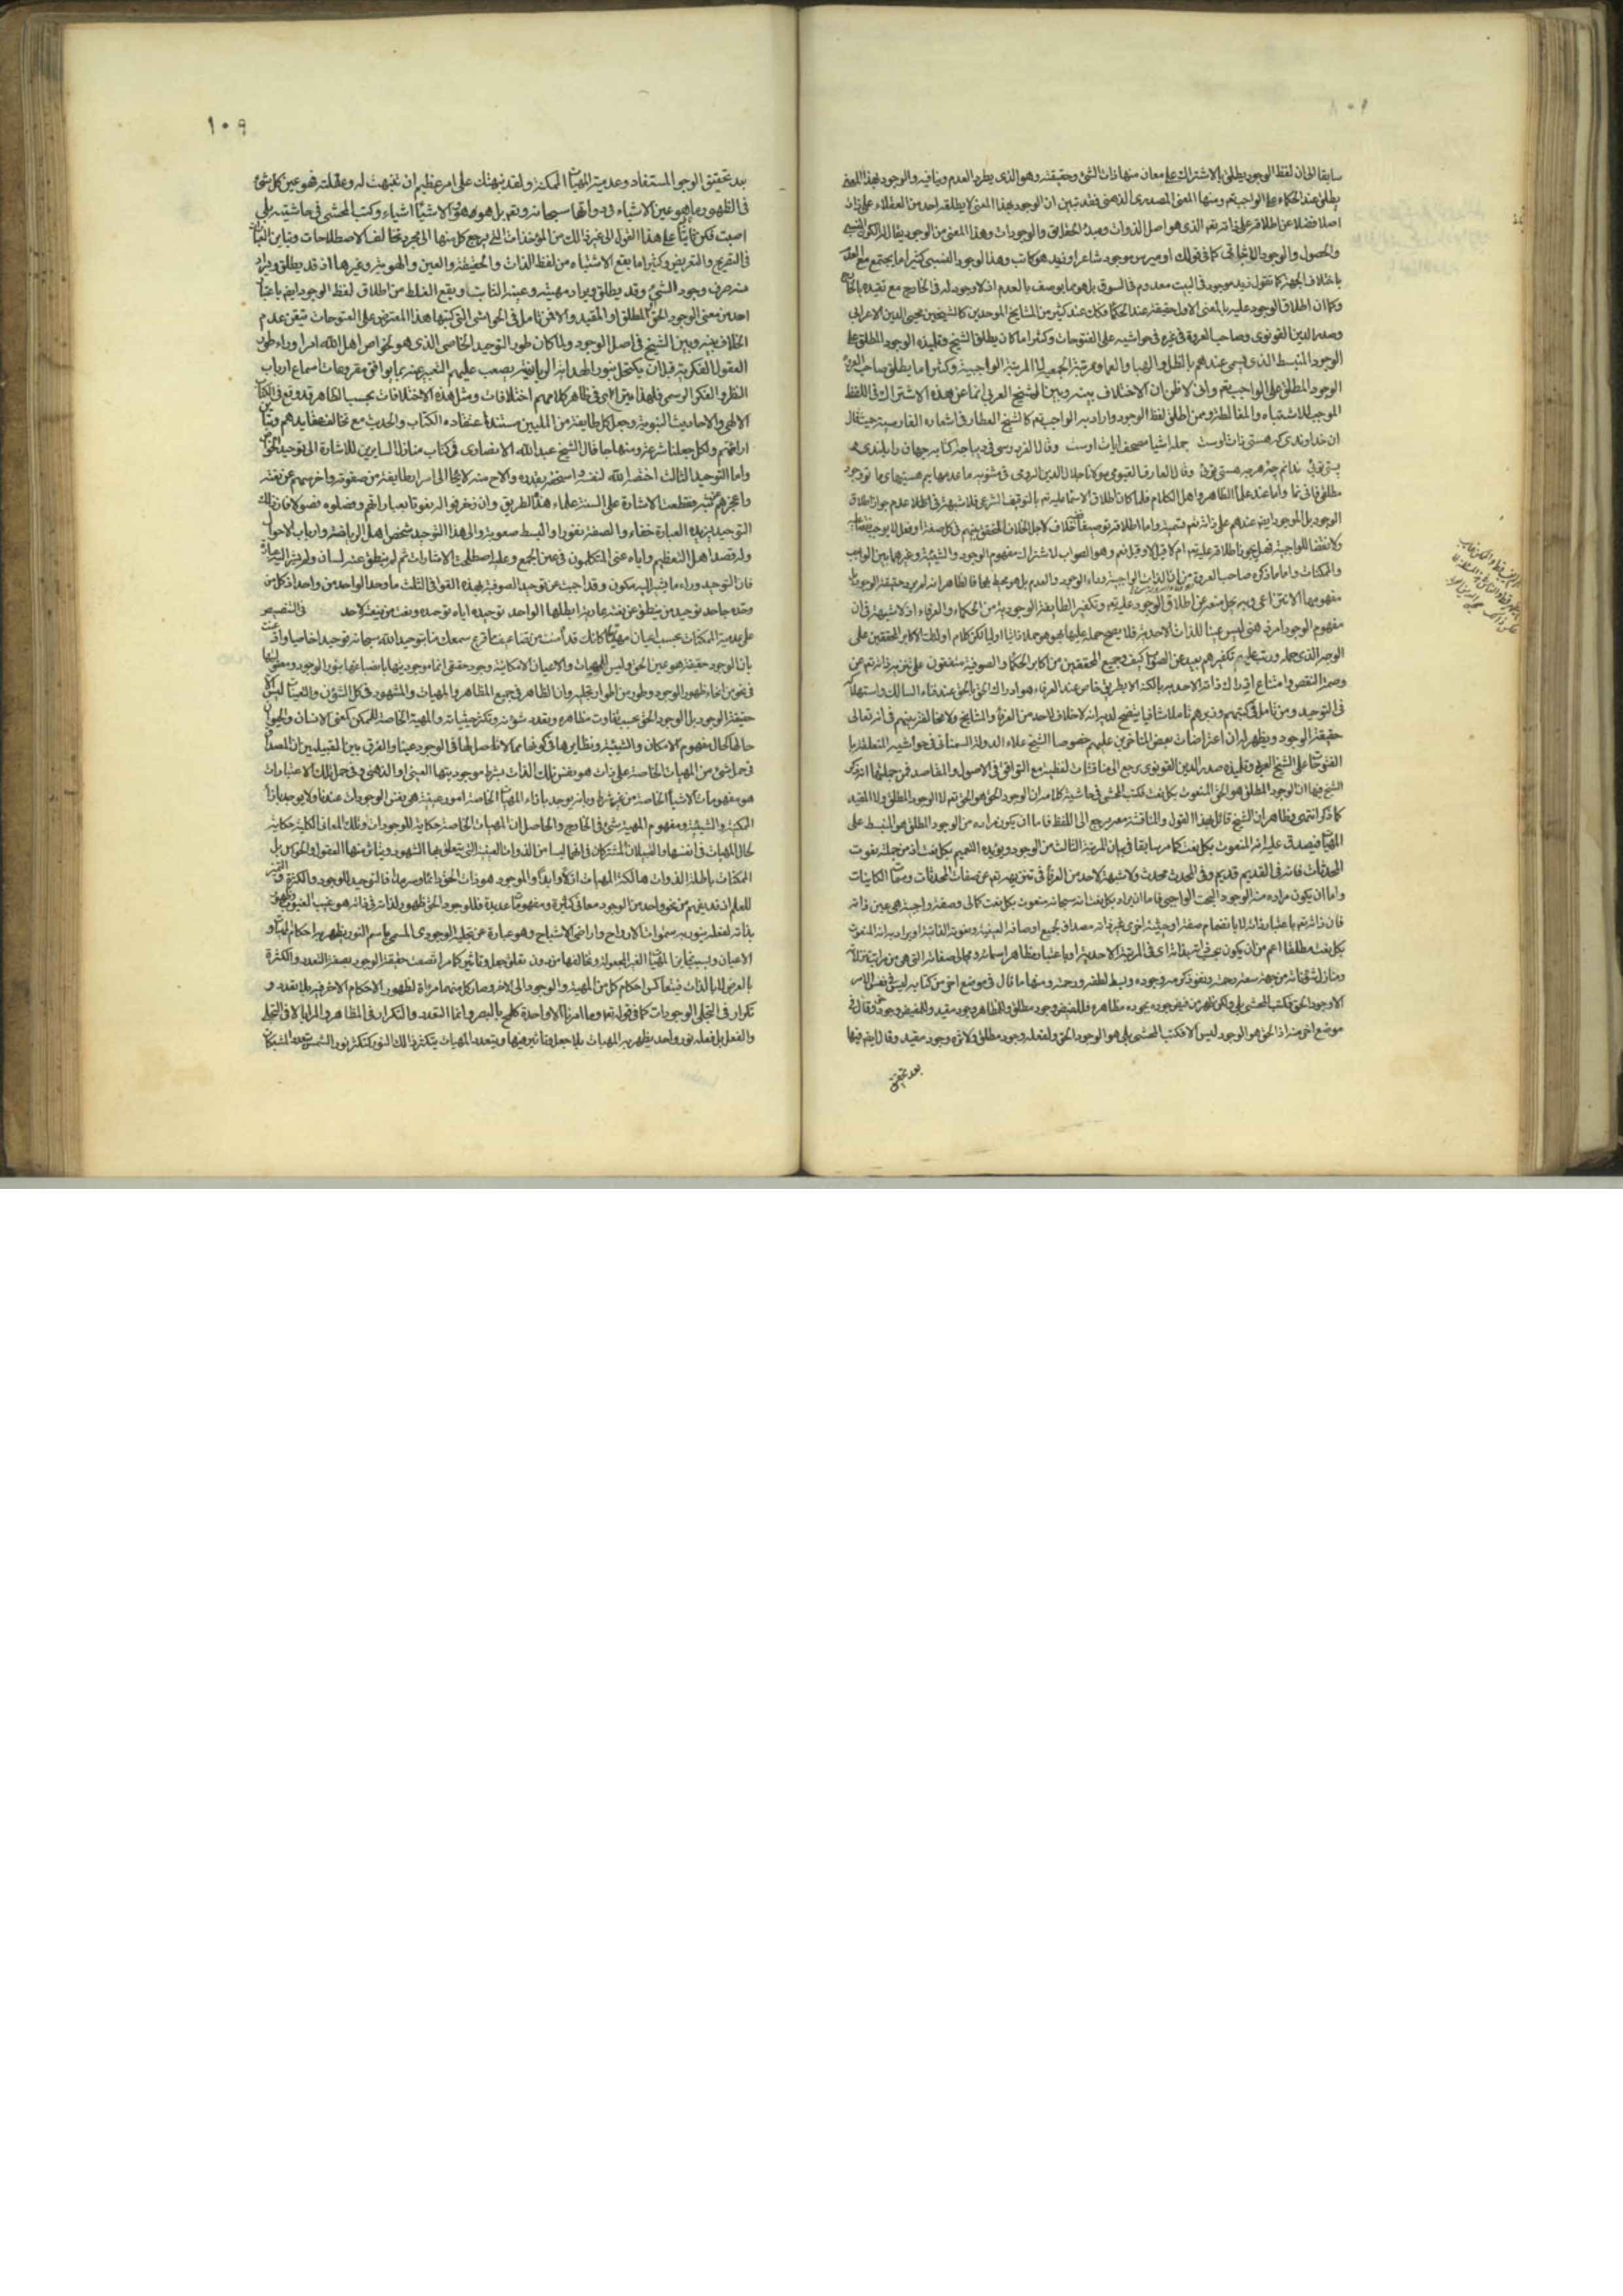 ١٠٨
سابقا الى ان لفظ الوجود يطلق بالاشتراك على معان منها ذات الشئ وحقيقته وهو الذى يطرد العدم وينافيه والوجود بهذا المعنى
يطلق عند الحكماء على الواجب تعم ومنها المعنى المصدرى الذهنى فقد تبين ان الوجود بهذا المعنى لا يطلقه احد من العقلاء على ذات
اصلا فضلا عن اطلاقه على ذاته تعم الذى هو اصل الذوات ومبدء الحقايق والوجودات وهذا المعنى من الوجود يقال له الكون النسبى
والحصول والوجود الاثباتى كما فى قولك اوميرس موجود شاعرا وزيد هو كاتب وهذا الوجود النسبى كثيرا ما يجتمع مع العدم
باختلاف الجهة كما تقول زيد موجود فى البيت معدوم فى السوق بل هو مما يوصف بالعدم اذ لا وجود له فى الخارج مع تقيده بالخارج
وكما ان اطلاق الوجود عليه بالمعنى الاول حقيقة عند الحكما فكك عند كثير من المشايخ الموحدين كالشيخين محيى الدين الاعرابى
وصدر الدين القونوى وصاحب العروة فى غيره فى حواشيه على الفتوحات وكثيرا ما كان يطلق الشيخ وتلميذه الوجود المطلق على
الوجود المنبسط الذى يسمى عندهم بالظل والهبا والعما ومرتبة الجمعية لا المرتبة الواجبية وكثيرا ما يطلق صاحب العروة
الوجود المطلق على الواجب تعم وانى لاظن ان الاختلاف بينه وبين الشيخ العربى انما عن هذه الاشتراك فى اللفظ
الموجب للاشتباه والمغالطة وممن اطلق لفظ الوجود واراد به الواجب تعم كالشيخ العطار فى اشعاره الفارسية حيث قال
ان خداوندى كه هستى ذات اوست جمله اشيا مصحف ايات اوست وقال الفردوسى فى ديباجة كتابه جهان را بلندى و
پستى توئى ندانم چه هر چه هستى توئى وقال العارف القيومى مولانا جلال الدين الرومى فى مثنويه ما عدمهائيم هستيها نما تو وجود
مطلق فانى نما واما عند علما الظاهر واهل الكلام فلما كان اطلاق الاسما عليه تعم بالتوقيف الشرعى فلا شبهة فى اطلا عدم جواز اطلاق
الوجود بل الموجود ايضا عندهم على ذاته تعم تسمية واما اطلاقه توصيفا فيه خلاف لاجل الخلاف المتحقق بينهم فى كل صفة او فعل لا يوجب نقصا عليه
ولا نقضا للواجبية فهل يجوز اطلاقه عليه تعم ام لا قيل لا وقيل نعم وهو الصواب لاشتراك مفهوم الوجود والشيئية وغيرهما بين الواجب
والممكنات واما ما ذكره صاحب العروة من ان الذات الواجبة وراء الوجود والعدم بل هو محيط بهما فالظاهر انه لم يرد حقيقة الوجود بل
مفهومهما الانتزاعى وبه يحل منعه عن اطلاق الوجود عليه تعم وتكفير الطايفة الوجودية من الحكماء والعرفاء اذ لا شبهة فى ان
مفهوم الوجود امر ذهنى ليس عينا للذات الاحدية فلا يصح حمله عليها بهو هو حملا ذاتيا اوليا لكن كلام اولئك الاكابر المحققين على
الوجه الذى حمله ورتب عليه تكفيرهم بعيد عن الصواب كيف وجميع المحققين من اكابر الحكما والصوفية متفقون على تنزيه ذاته تعم عن
وصمة النقص وامتناع ادراك ذاته الاحدية بالكنه الا بطريق خاص عند العرفاء هو ادراك الحق بالحق عند فناء السالك واستهلاكه
فى التوحيد ومن تامل فى كتبهم وزبرهم تاملا شافيا يتضح لديه انه لا خلاف لاحد من العرفا والمشايخ ولا مخالفة بينهم فى انه تعالى
حقيقة الوجود ويظهر له ان اعتراضات بعض المتاخرين عليهم خصوصا الشيخ علاء الدولة السمنانى فى حواشيه المتعلقة با
لفتوحات على الشيخ العربى وتلميذه صدر الدين القونوى يرجع الى مناقشات لفظية مع التوافق فى الاصول والمقاصد فمن جملتها انه ذكر
الشيخ فيها ان الوجود المطلق هو الحق المنعوت بكل نعت فكتب المحشى فى حاشية كلامه ان الوجود الحق هو الحق تعم لا الوجود المطلق ولا المقيد
كما ذكر انتهى وظاهر ان الشيخ قائل بهذا القول والمناقشة معه يرجع الى اللفظ فاما ان يكون مراده من الوجود المطلق هو المنبسط على
المهيات فيصدق عليه انه المنعوت بكل نعت كما مر سابقا فى بيان المرتبة الثالث من الوجود ويؤيده التعميم بكل نعت اذ من جملته نعوت
المحدثات فانه فى القديم قديم وفى المحدث محدث ولا شبهة لاحد من العرفا فى تنزيهه تعم عن صفات المحدثات وسمات الكاينات
واما ان يكون مراده منه الوجود البحت الواجبى فاما ان يراد بكل نعت انه سبحانه منعوت بكل نعت كمالى وصفة واجبية هى عين ذاته
فان ذاته تعم باعتبار ذاته لا بانضمام صفة او حيثية اخرى غير ذاته مصداق لجميع اوصافه العينية ونعوته الذاتية او يراد به انه المنعوت
بكل نعت مطلقا اعم من ان يكون بحسب ذاته اى فى المرتبة الاحدية او باعتبار مظاهر اسمائه ومجالى صفاته التى هى من مراتب تنزلاته
ومنازل شؤناته من جهة سعة رحمته ونفوذ كرمه وجوده وبسط لطفه ورحمته ومنها ما قال فى موضع اخر من كتابه ليس فى نفس الامر
الا وجود الحق فكتب المحشى بلى ولكن ظهر من فيض جوده بجوده مظاهره فللفيض وجود مطلق وللمظاهر وجود مقيد وللمفيض وجود حق وقال فى
موضع اخر منه اذ الحق هو الوجود ليس الا فكتب المحشى بلى هو الوجود الحق ولفعله وجود مطلق ولاثره وجود مقيد وقال ايضا فيها
بعد تحقيق
١٠٩
بعد تحقيق الوجود المستفاد وعدمية المهيات الممكنة ولقد نبهتك على امر عظيم ان تنبهت له وعقلته فهو عين كل شئ
فى الظهور ما هو عين الاشياء فى ذواتها سبحانه وتعم بل هو هو والاشيا اشياء وكتب المحشى فى حاشيته بلى
اصبت فكن ثابتا على هذا القول الى غير ذلك من المؤاخذات التى يرجع كل منها الى مجرد تخالف الاصطلاحات وتباين العادات
فى التصريح والتعريض وكثيرا ما يقع الاشتباه من لفظ الذات والحقيقة والعين والهوية وغيرها اذ قد يطلق ويراد
منه صرف وجود الشئ وقد يطلق ويراد مهيته وعينه الثابت ويقع الغلط من اطلاق لفظ الوجود ايضا باعتبار
احد من معنى الوجود الحق المطلق او المقيد والا فمن تامل فى الحواشى التى كتبها هذا المعترض على الفتوحات تيقن عدم
الخلاف بينه وبين الشيخ فى اصل الوجود ولما كان طور التوحيد الخاصى الذى هو لخواص اهل الله امرا وراء طور
العقول الفكرية قبل ان يكتحل بنور الهداية الربانية يصعب عليهم التعبير عنه بما يوافق مقروعات اسماع ارباب
النظر والفكر الرسمى فلهذا يترائى فى ظاهر كلامهم اختلافات ومثل هذه الاختلافات بحسب الظاهر قد وقع فى الكتاب
الالهى والاحاديث النبوية وجعل كل طايفة من المليين مستند اعتقاده الكتاب والحديث مع تخالف عقايدهم وتباين
ارائهم ولكل جعلنا شرعة ومنهاجا قال الشيخ عبد الله الانصارى فى كتاب منازل السايرين للاشارة الى توحيد الخواص
واما التوحيد الثالث اختصه الله لنفسه واستحقه بقدره والاح منه لايحا الى اسرار طايفة من صفوته واخرسهم عن نعته
واعجزهم عن بثه فقطعت الاشارة على السنة علماء هذا الطريق وان زخرفوا له نعوتا بعباراتهم وفصلوه فصولا فان ذلك
التوحيد يزيده العبارة خفاء والصفة نفورا والبسط صعوبة والى هذا التوحيد شخص اهل الرياضة وارباب الاحوال
وله قصد اهل التعظيم واياه عنى المتكلمون فى عين الجمع وعليه اصطلحت الاشارات ثم لم ينطق عنه لسان ولم يشر اليه عبارة
فان التوحيد وراء ما يشير اليه مكون وقد اجبت عن توحيد الصوفية بهذه القوافى الثلث ما وحد الواحد من واحد اذ كل من
وحده جاحد توحيد من ينطق عن نعته عارية ابطلها الواحد توحيده اياه توحيده ونعت من ينعته لاحد فى التنصيص
على عدمية الممكنات بحسب اعيان مهياتها كانك قد امنت من تضاعيف ما قرع سمعك منا بتوحيد الله سبحانه توحيدا خاصيا واذعنت
بان الوجود حقيقة هو عين الحق وليس للمهيات والاعيان الامكانية وجود حقيقى انما موجوديتها بانصباغها بنور الوجود ومعقوليتها
فى نحو من انحاء ظهور الوجود وطور من اطوار تجليه وان الظاهر فى جميع المظاهر والمهيات والمشهود فى كل الشؤن والتعينات ليس الا
حقيقة الوجود بل الوجود الحق بحسب تفاوت مظاهره وتعدد شؤنه وتكثر حيثياته والمهية الخاصة الممكنة كمعنى الانسان والحيوان
حالها كحال مفهوم الامكان والشيئية ونظايرها فى كونها مما لا تاصل لها فى الوجود عينا والفرق بين القبيلين ان المصداق
فى حمل شئ من المهيات الخاصة على ذات هو نفس تلك الذات بشرط موجوديتها العينى او الذهنى وفى حمل تلك الاعتبارات
هو مفهومات الاشيا الخاصة من غير شرط وبانه يوجد بازاء المهيات الخاصة امور عينية هو نفس الوجودات عندنا ولا يوجد بازاء
الممكنية والشيئية ومفهوم المهية شئ فى الخارج والحاصل ان المهيات الخاصة حكاية للوجودات وتلك المعانى الكلية حكاية
لحال المهيات فى انفسها والقبيلان المشتركان فى انهما ليسا من الذوات العينية التى يتعلق بها الشهود ويتاثر منها العقول والحواس بل
الممكنات باطلة الذوات هالكة المهيات ازلا وابدا والموجود هو ذات الحق دائما وسرمدا فالتوحيد للوجود والكثرة والتميز
للعلم اذ قد يفهم من نحو واحد من الوجود معانى كثيرة ومفهومات عديدة فللوجود الحق ظهور لذاته فى ذاته هو غيب الغيوب وظهور
بذاته لفعله ينور به سموات الارواح واراضى الاشباح وهو عبارة عن تجليه الوجودى المسمى باسم النور يظهر به احكام المهيات و
الاعيان وبسبب تمايز المهيات الغير المجعولة وتخالفها من دون تعلق جعل وتاثير كما مر اتصفت حقيقة الوجود بصفة التعدد والكثرة
بالعرض لا بالذات فيتعاكس احكام كل من المهية والوجود الى الاخر وصار كل منهما مراة لظهور الاحكام الاخر فيه بلا تعدد و
تكرار فى التجلى الوجودات كما فى قوله تعم وما امرنا الا واحدة كلمح بالبصر وانما التعدد والتكرار فى المظاهر والمرايا لا فى التجلى
والفعل بل فعله نور واحد يظهر به المهيات بلا جعل وتاثير فيها وبتعدد المهيات يتكثر ذلك النور كتكثر نور الشمس بتعدد المشبكات